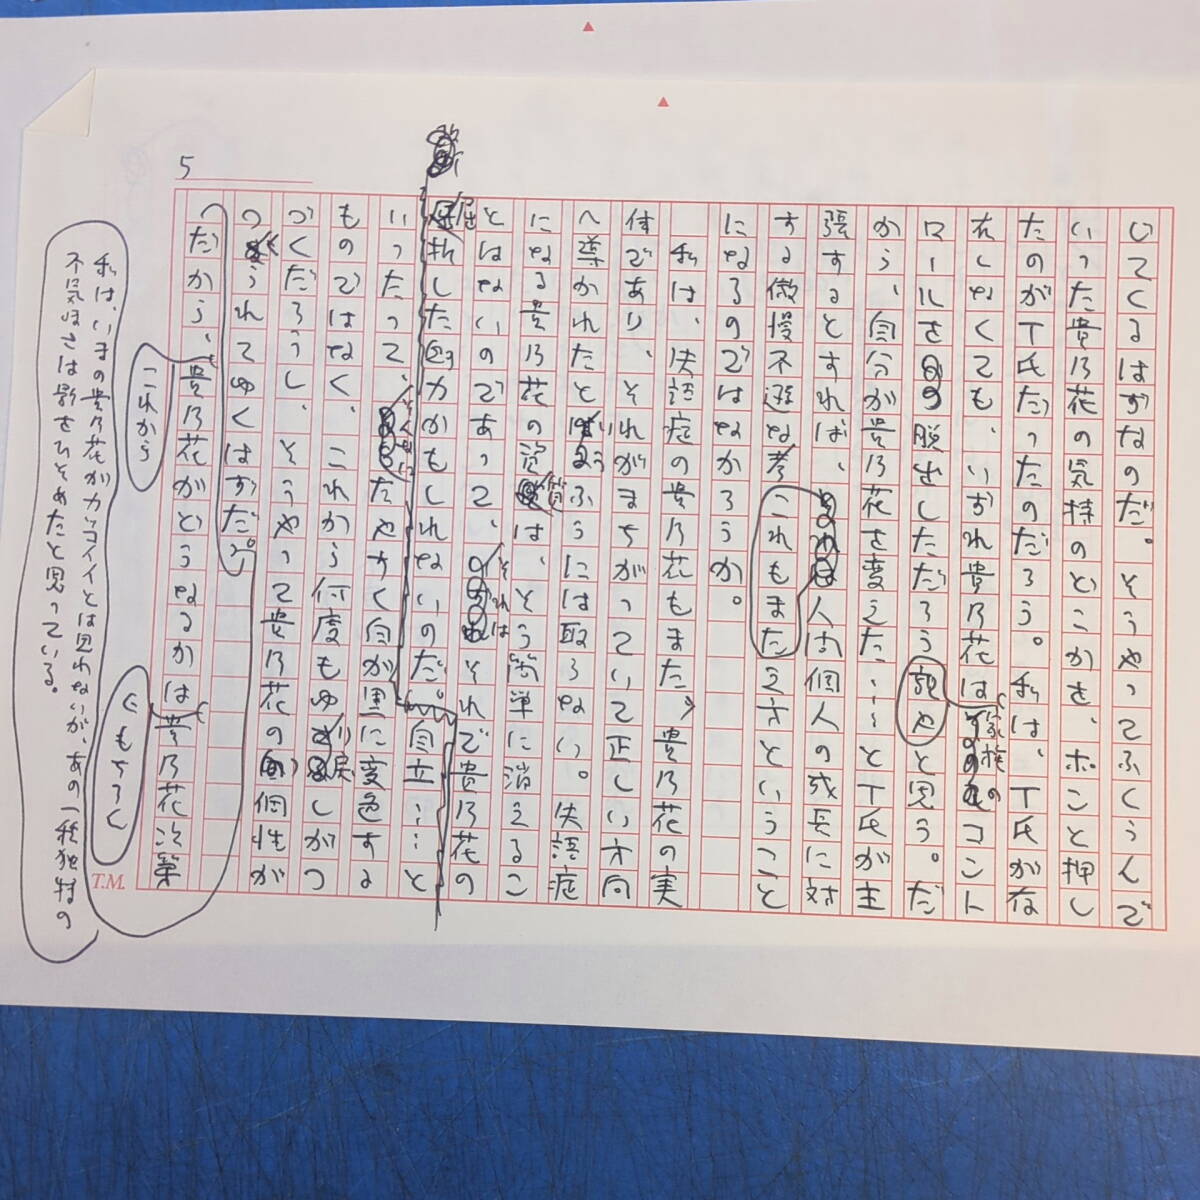 5
じてくるはずなのだ。そうやってふくらんで
いった貴乃花の気持のどこかを、ポンと押し
たのがT氏だったのだろう。私は、T氏が存
在しなくても、いずれ貴乃花は家族のコント
ロールを脱出しただろうと思う。だ
親や
から、自分が貴乃花を変えた……とT氏が主
張するとすれば、人間個人の成長に対
する傲慢不遜な考え方ということ
これもまた
になるのではなかろうか。
私は、失語症の貴乃花もまた、貴乃花の実
体であり、それがまちがっていて正しい方向
へ導かれたというふうには取らない。失語症
になる貴乃花の資質は、そう簡単に消えるこ
とはないのであって、それはそれで貴乃花の
屈折した魅力かもしれないのだ。自立……と
いったって、そんなにたやすく白が黒に変色する
ものではなく、これから何度もゆり戻しがつ
づくだろうし、そうやって貴乃花の個性が
つくられてゆくはずだ。
だから、貴乃花がどうなるかは貴乃花次第
これから
にもちろん
私は、いまの貴乃花がカッコイイとは思わないが、あの一種独特の
不気味さは影をひそめたと思っている。
T.M.